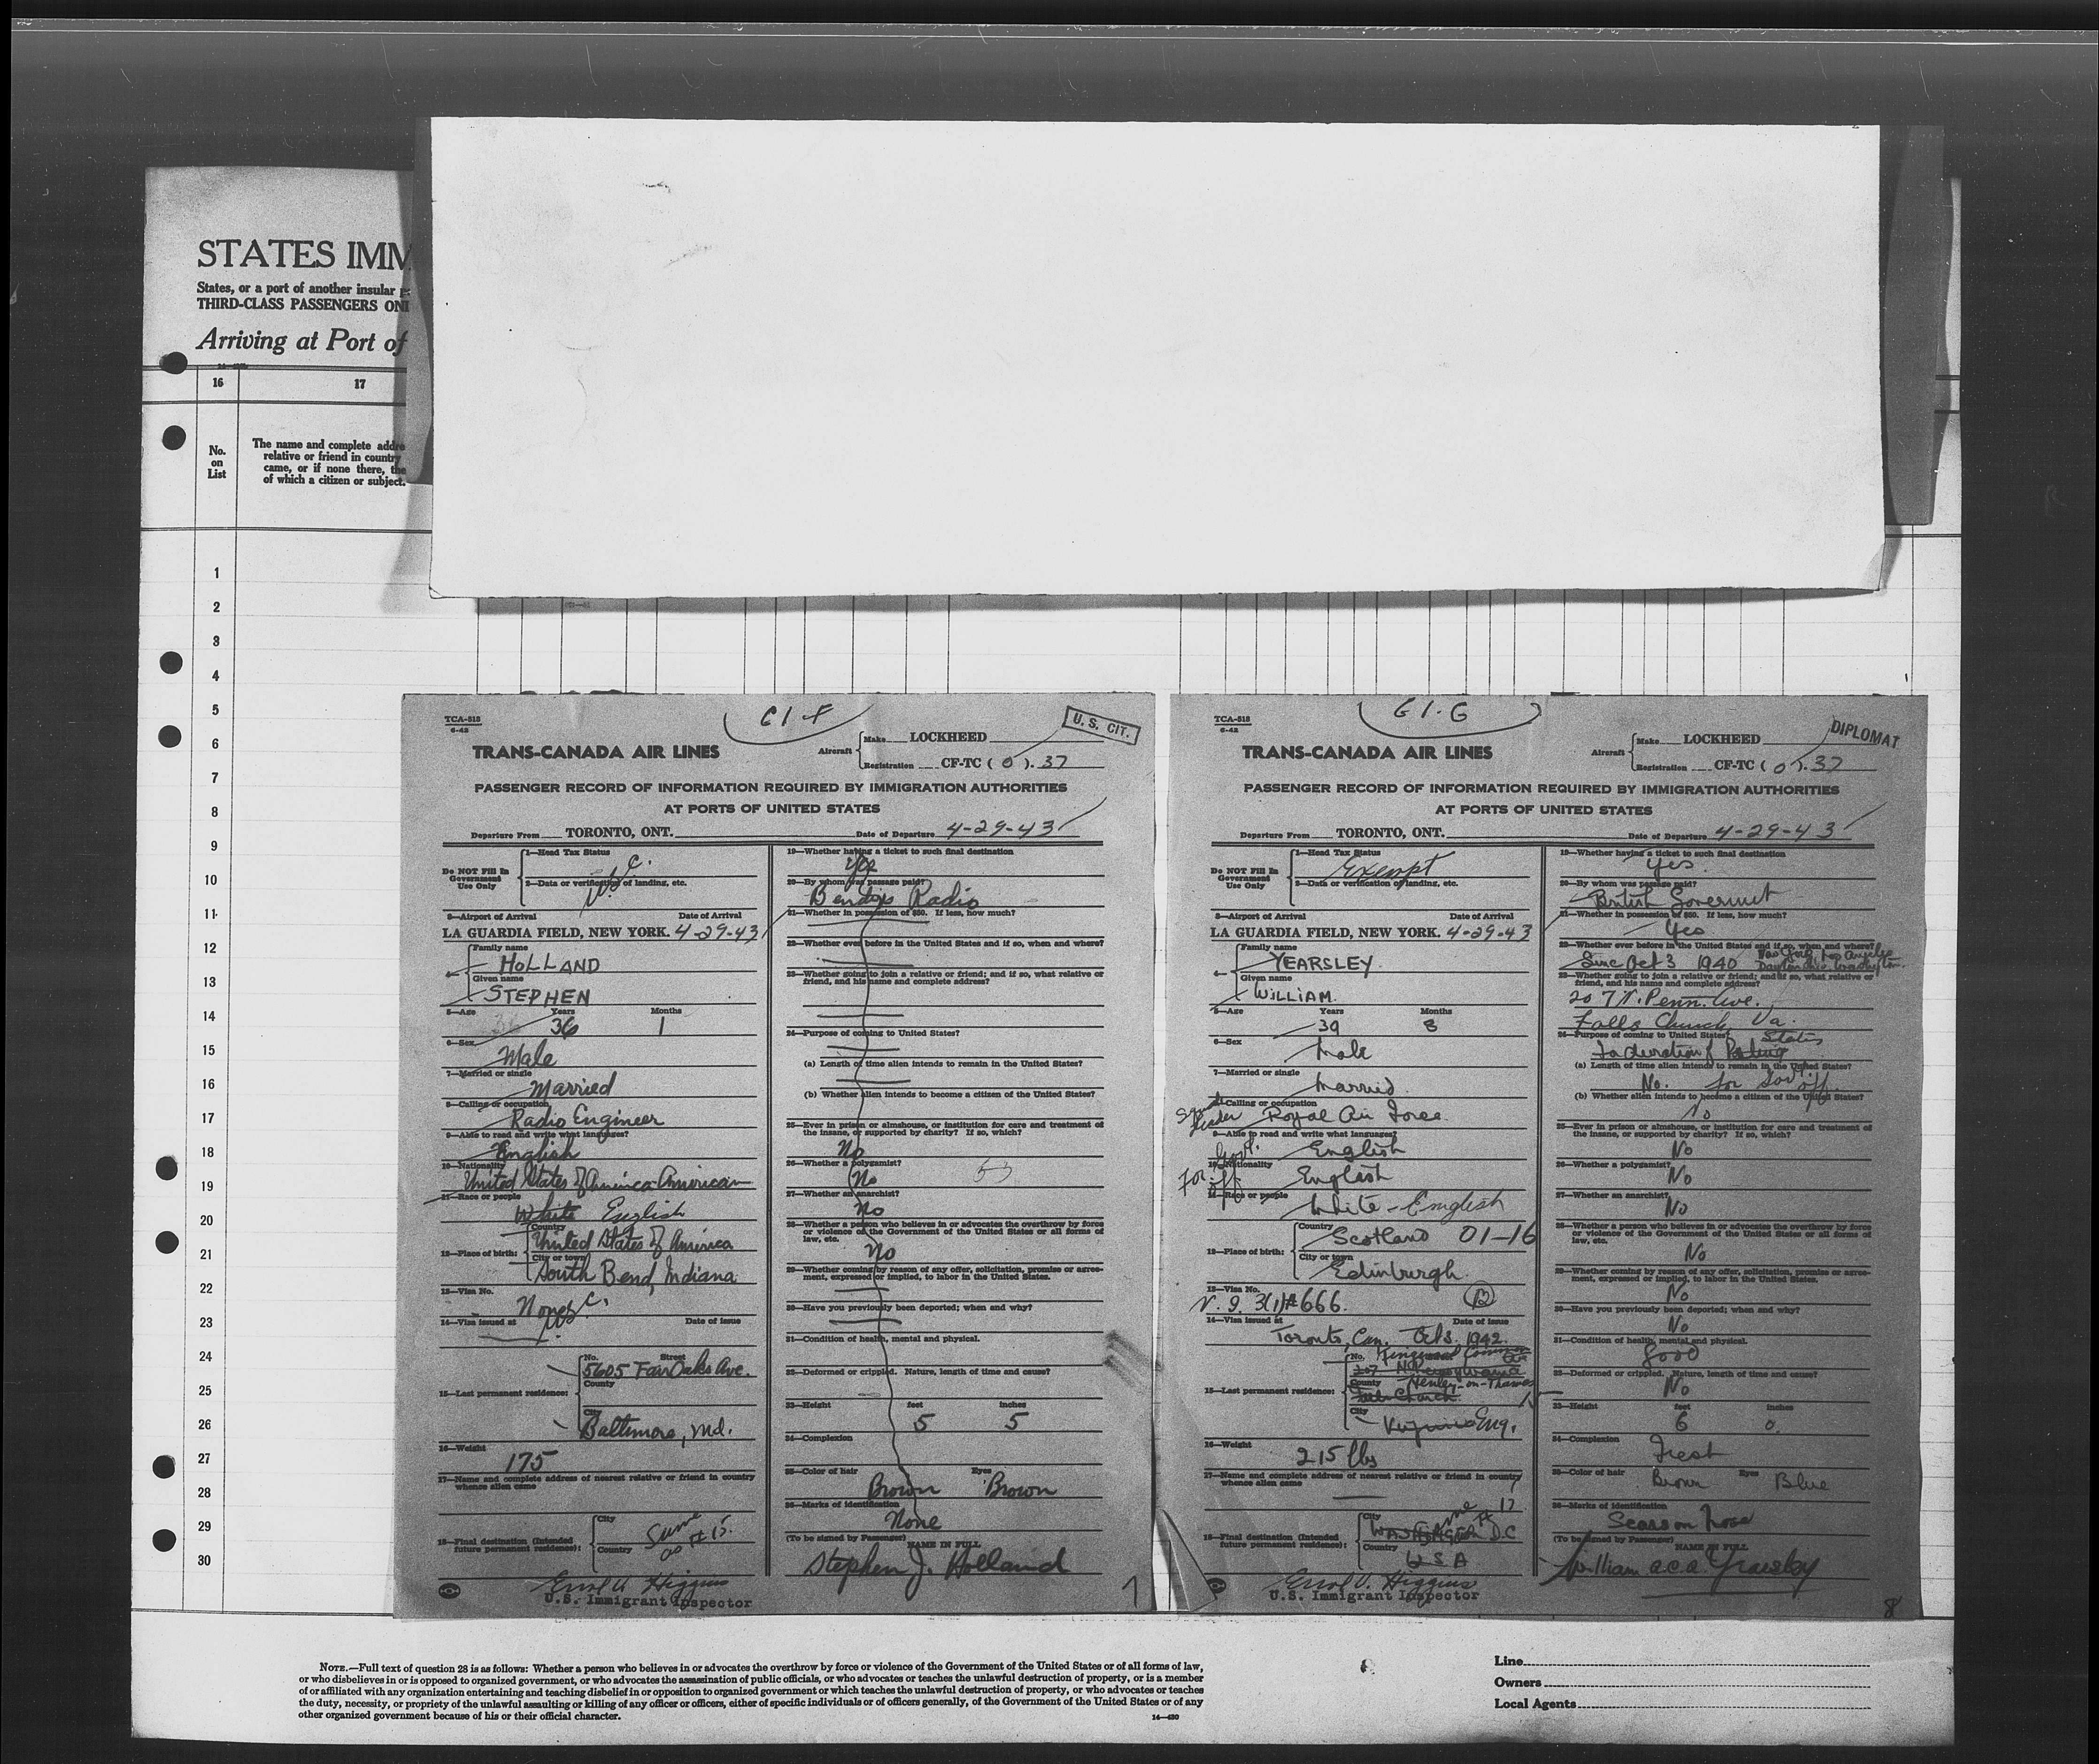 STATES IMM
States, or a port of another insular
THIRD-CLASS PASSENGERS ON
Arriving at Port of
16 17
No. on List
The name and complete addre
relative or friend in country
came, or if none there, the
of which a citizen or subject.
1
2
3
4
5
6
7
8
9
10
11
12
13
14
15
16
17
18
19
20
21
22
23
24
25
26
27
28
29
30
TCA-518
6-42
C1-F
U. S. CIT.
TRANS-CANADA AIR LINES
Aircraft Make LOCKHEED
Registration CF-TC ( 0 ). 37
PASSENGER RECORD OF INFORMATION REQUIRED BY IMMIGRATION AUTHORITIES
AT PORTS OF UNITED STATES
Departure From TORONTO, ONT. Date of Departure 4-29-43
Do NOT Fill In Government Use Only
1—Head Tax Status
2—Data or verification of landing, etc.
3—Airport of Arrival Date of Arrival
LA GUARDIA FIELD, NEW YORK. 4-29-43
4— Family name
HOLLAND
Given name
STEPHEN
5—Age Years Months
36 1
6—Sex
Male
7—Married or single
Married
8—Calling or occupation
Radio Engineer
9—Able to read and write what languages?
English
10—Nationality
United States of America-American
11—Race or people
White English
12—Place of birth: Country
United States of America
City or town
South Bend, Indiana
13—Visa No.
None
14—Visa issued at Date of issue
15—Last permanent residence: No. Street
5605 Fair Oaks Ave.
County
City
Baltimore, Md.
16—Weight
175
17—Name and complete address of nearest relative or friend in country
whence alien came
18—Final destination (Intended future permanent residence): City
Country
Same as # 15.
Errol U. Higgins
U.S. Immigrant Inspector
19—Whether having a ticket to such final destination
Yes
20—By whom was passage paid?
Bendix Radio
21—Whether in possession of $50. If less, how much?
22—Whether ever before in the United States and if so, when and where?
23—Whether going to join a relative or friend; and if so, what relative or
friend, and his name and complete address?
24—Purpose of coming to United States?
(a) Length of time alien intends to remain in the United States?
(b) Whether alien intends to become a citizen of the United States?
25—Ever in prison or almshouse, or institution for care and treatment of
the insane, or supported by charity? If so, which?
No
26—Whether a polygamist?
No 53
27—Whether an anarchist?
No
28—Whether a person who believes in or advocates the overthrow by force
or violence of the Government of the United States or all forms of
law, etc.
No
29—Whether coming by reason of any offer, solicitation, promise or agree-
ment, expressed or implied, to labor in the United States.
30—Have you previously been deported; when and why?
31—Condition of health, mental and physical.
32—Deformed or crippled. Nature, length of time and cause?
33—Height feet inches
5 5
34—Complexion
35—Color of hair Eyes
Brown Brown
36—Marks of identification
None
(To be signed by Passenger) NAME IN FULL
Stephen J. Holland
7
TCA-518
6-42
G1-G
DIPLOMAT
TRANS-CANADA AIR LINES
Aircraft Make LOCKHEED
Registration CF-TC ( 0 ). 37
PASSENGER RECORD OF INFORMATION REQUIRED BY IMMIGRATION AUTHORITIES
AT PORTS OF UNITED STATES
Departure From TORONTO, ONT. Date of Departure 4-29-43
Do NOT Fill In Government Use Only
1—Head Tax Status
Exempt
2—Data or verification of landing, etc.
3—Airport of Arrival Date of Arrival
LA GUARDIA FIELD, NEW YORK. 4-29-43
4— Family name
YEARSLEY
Given name
WILLIAM.
5—Age Years Months
39 8
6—Sex
Male
7—Married or single
Married.
8—Calling or occupation
Royal Air Force
9—Able to read and write what languages?
English
For Govt. off
10—Nationality
English
11—Race or people
White - English
12—Place of birth: Country
Scotland 01-16
City or town
Edinburgh.
13—Visa No.
V. 9. 3(1)#666.
14—Visa issued at Date of issue
Toronto, Can. 1942.
15—Last permanent residence: No.
County
Henley-on-Thames
City
Eng.
16—Weight
215 lbs
17—Name and complete address of nearest relative or friend in country
whence alien came
18—Final destination (Intended future permanent residence): City
WASHINGTON D.C
Country
USA
Errol U. Higgins
U.S. Immigrant Inspector
19—Whether having a ticket to such final destination
Yes
20—By whom was passage paid?
British
21—Whether in possession of $50. If less, how much?
Yes
22—Whether ever before in the United States and if so, when and where?
Since Oct 3 1940 New York, Los Angeles
Dayton Ohio, Washington
23—Whether going to join a relative or friend; and if so, what relative or
friend, and his name and complete address?
207 N. Penn. Ave.
Falls Church Va.
24—Purpose of coming to United States?
(a) Length of time alien intends to remain in the United States?
No.
(b) Whether alien intends to become a citizen of the United States?
No
25—Ever in prison or almshouse, or institution for care and treatment of
the insane, or supported by charity? If so, which?
No
26—Whether a polygamist?
No
27—Whether an anarchist?
No
28—Whether a person who believes in or advocates the overthrow by force
or violence of the Government of the United States or all forms of
law, etc.
No
29—Whether coming by reason of any offer, solicitation, promise or agree-
ment, expressed or implied, to labor in the United States.
No
30—Have you previously been deported; when and why?
No
31—Condition of health, mental and physical.
Good
32—Deformed or crippled. Nature, length of time and cause?
No
33—Height feet inches
6 0.
34—Complexion
35—Color of hair Eyes
Brown Blue
36—Marks of identification
Scar on Nose
(To be signed by Passenger) NAME IN FULL
William a.c.a. Yearsley
8
NOTE.—Full text of question 28 is as follows: Whether a person who believes in or advocates the overthrow by force or violence of the Government of the United States or of all forms of law,
or who disbelieves in or is opposed to organized government, or who advocates the assassination of public officials, or who advocates or teaches the unlawful destruction of property, or is a member
of or affiliated with any organization entertaining and teaching disbelief in or opposition to organized government or which teaches the unlawful destruction of property, or who advocates or teaches
the duty, necessity, or propriety of the unlawful assaulting or killing of any officer or officers, either of specific individuals or of officers generally, of the Government of the United States or of any
other organized government because of his or their official character.
14—420
Line
Owners
Local Agents